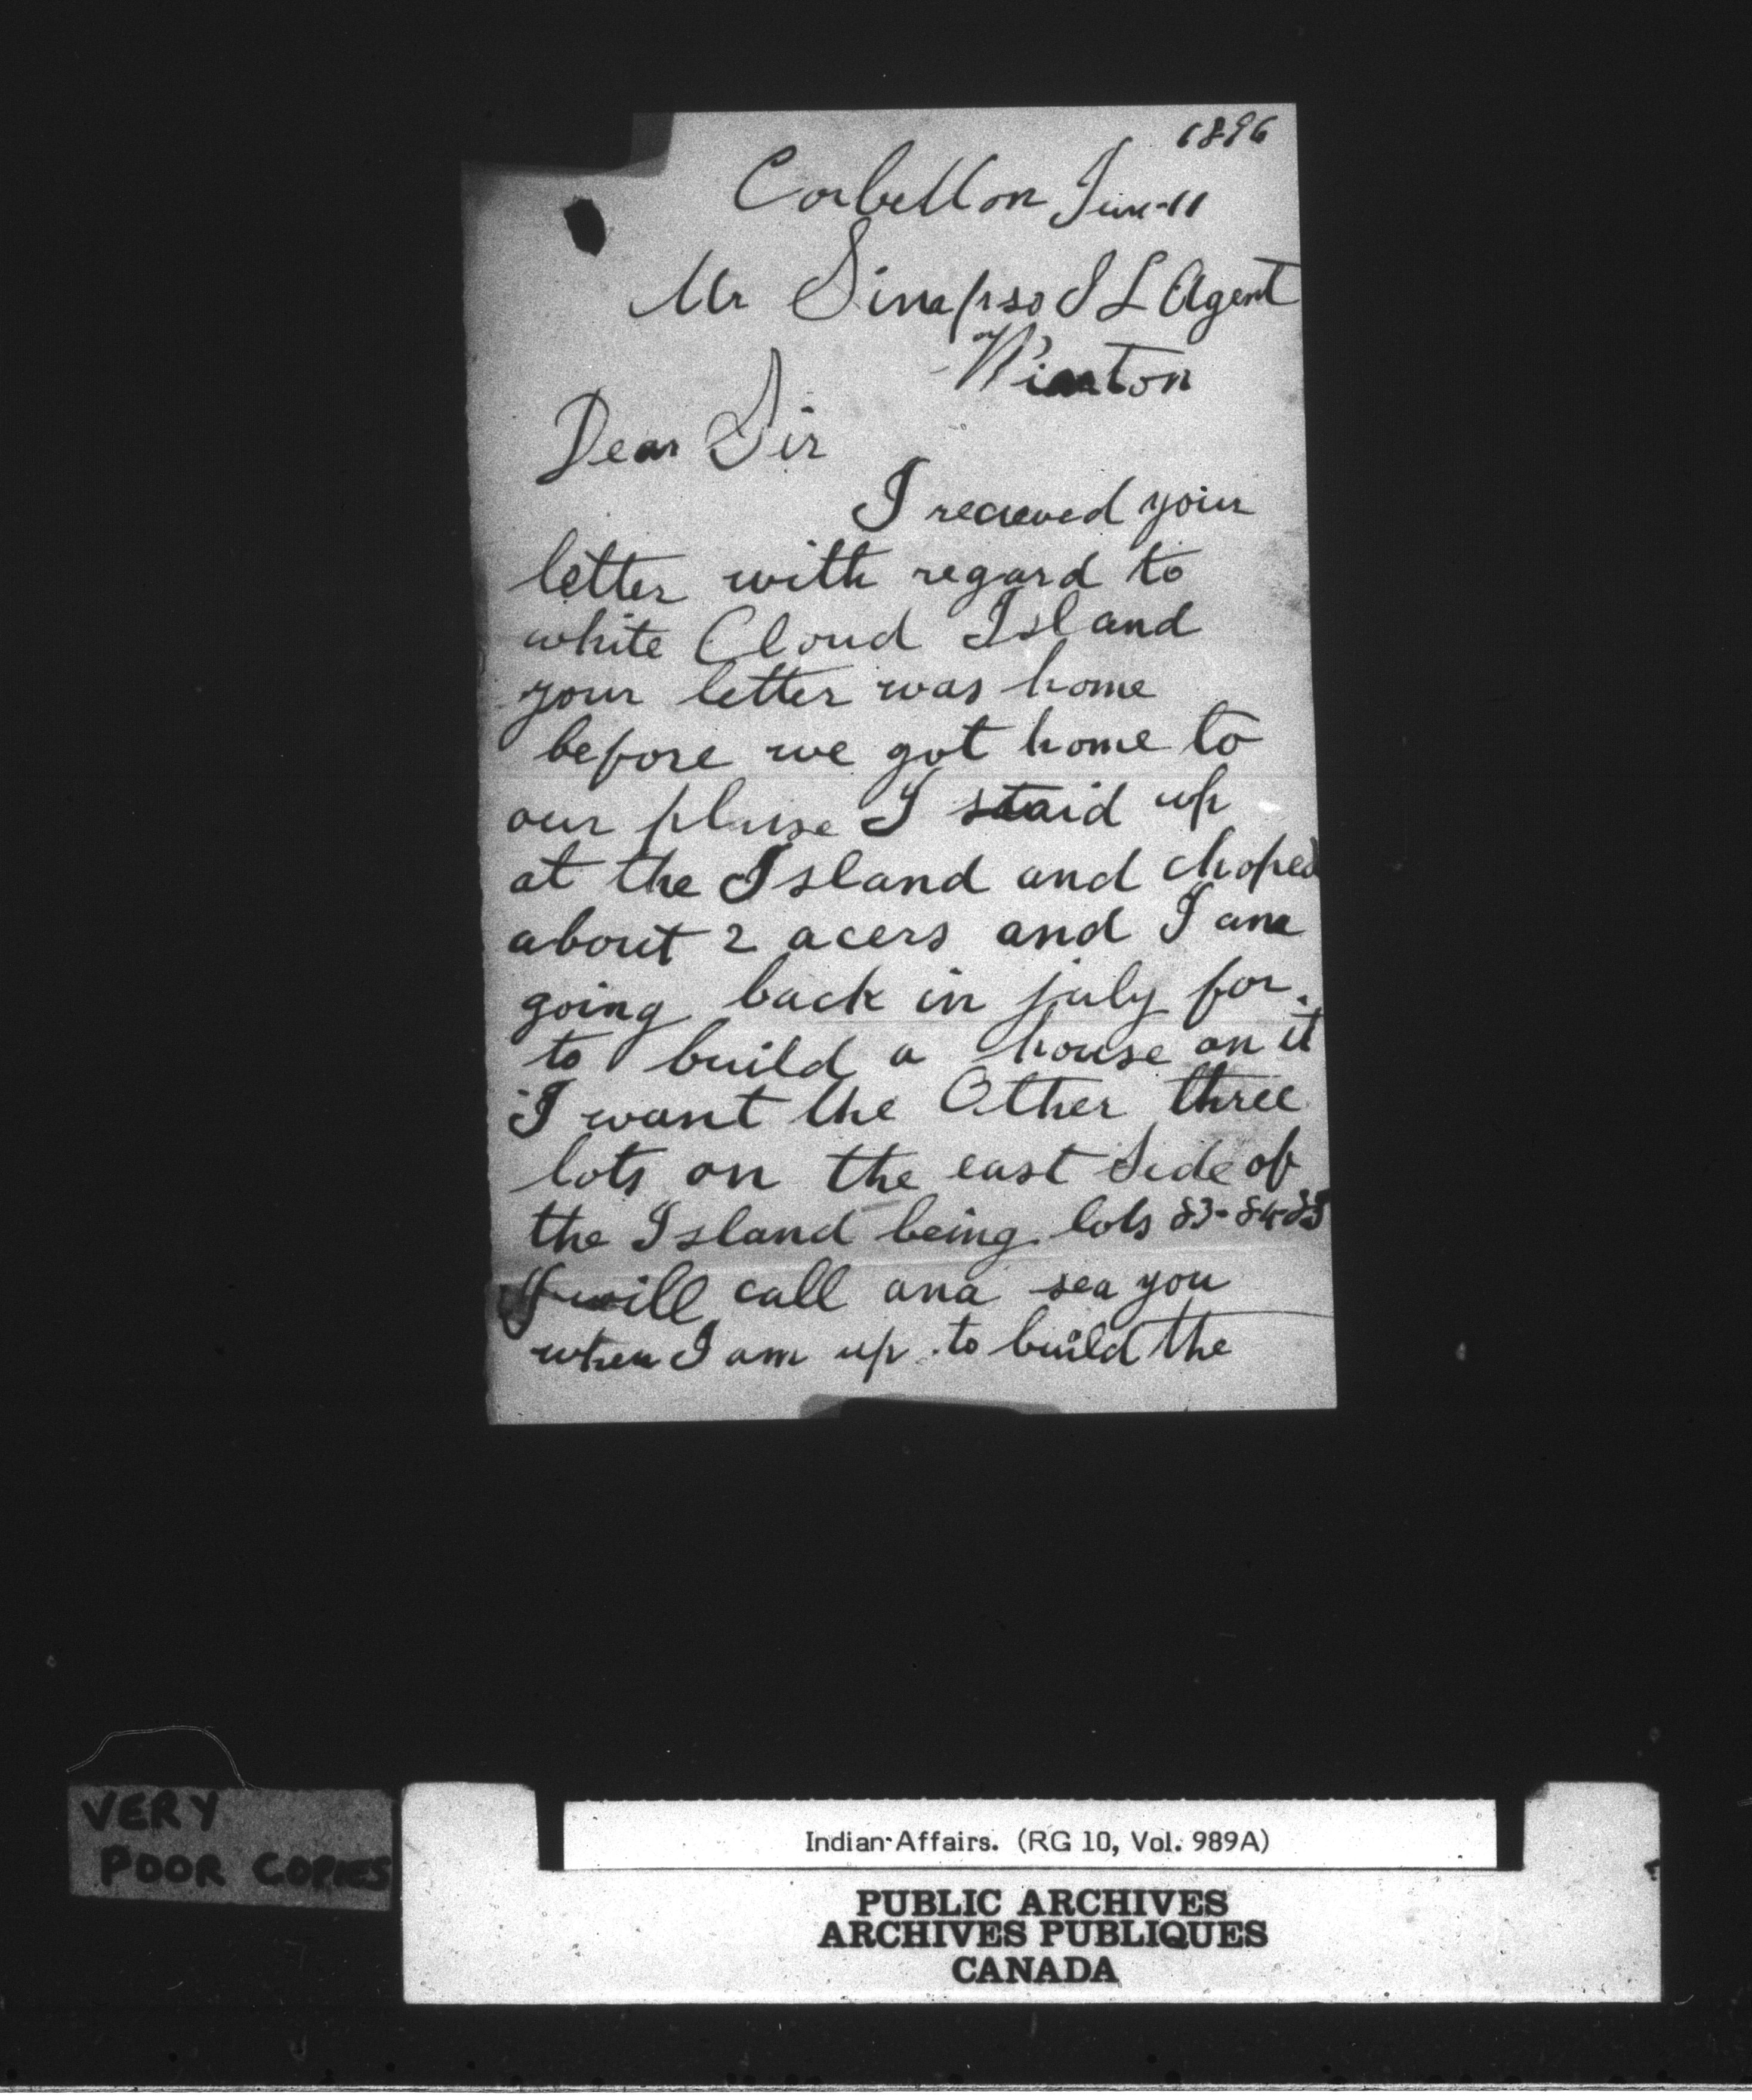 1896
Corbetton June 11
Mr Simpso I L Agent
Wiarton
Dear Sir
I recieved your
letter with regard to
white Cloud Island
your letter was home
before we got home to
our I staid up
at the Island and choped
about 2 acers and I am
going back in july for
to build a house on it
I want the Other three
lots on the east Side of
the Island being lots 83-84-85
I will call and sea you
when I am up to build the
VERY
POOR COPIES
Indian Affairs. (RG 10, Vol. 989A)
PUBLIC ARCHIVES
ARCHIVES PUBLIQUES
CANADA